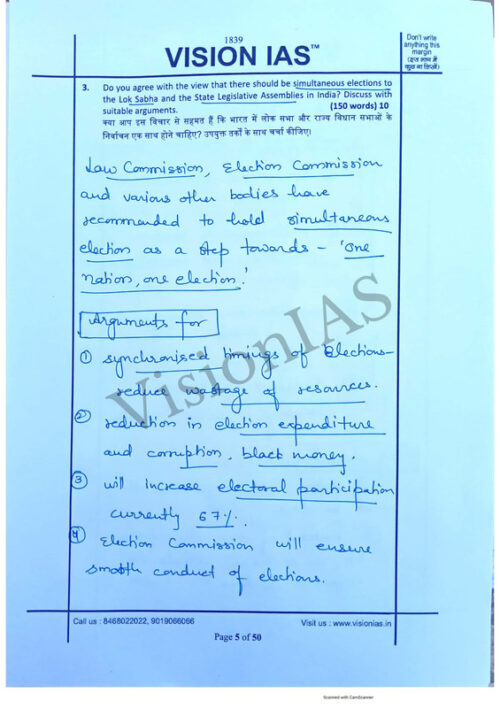 1839
VISION IAS™
Don't write
anything this
margin
(इस भाग में
कुछ ना लिखें)
3. Do you agree with the view that there should be simultaneous elections to
the Lok Sabha and the State Legislative Assemblies in India? Discuss with
suitable arguments. (150 words) 10
क्या आप इस विचार से सहमत हैं कि भारत में लोक सभा और राज्य विधान सभाओं के
निर्वाचन एक साथ होने चाहिए? उपयुक्त तर्कों के साथ चर्चा कीजिए।
Law Commission, Election Commission
and various other bodies have
recommended to hold simultaneous
election as a step towards - 'one
nation, one election.'
Arguments for
① synchronised timings of Elections-
reduce wastage of resources.
② reduction in election expenditure
and corruption, black money.
③ will increase electoral participation
currently 67%.
④ Election Commission will ensure
smooth conduct of elections.
VisionIAS
Call us : 8468022022, 9019066066
Visit us : www.visionias.in
Page 5 of 50
Scanned with CamScanner